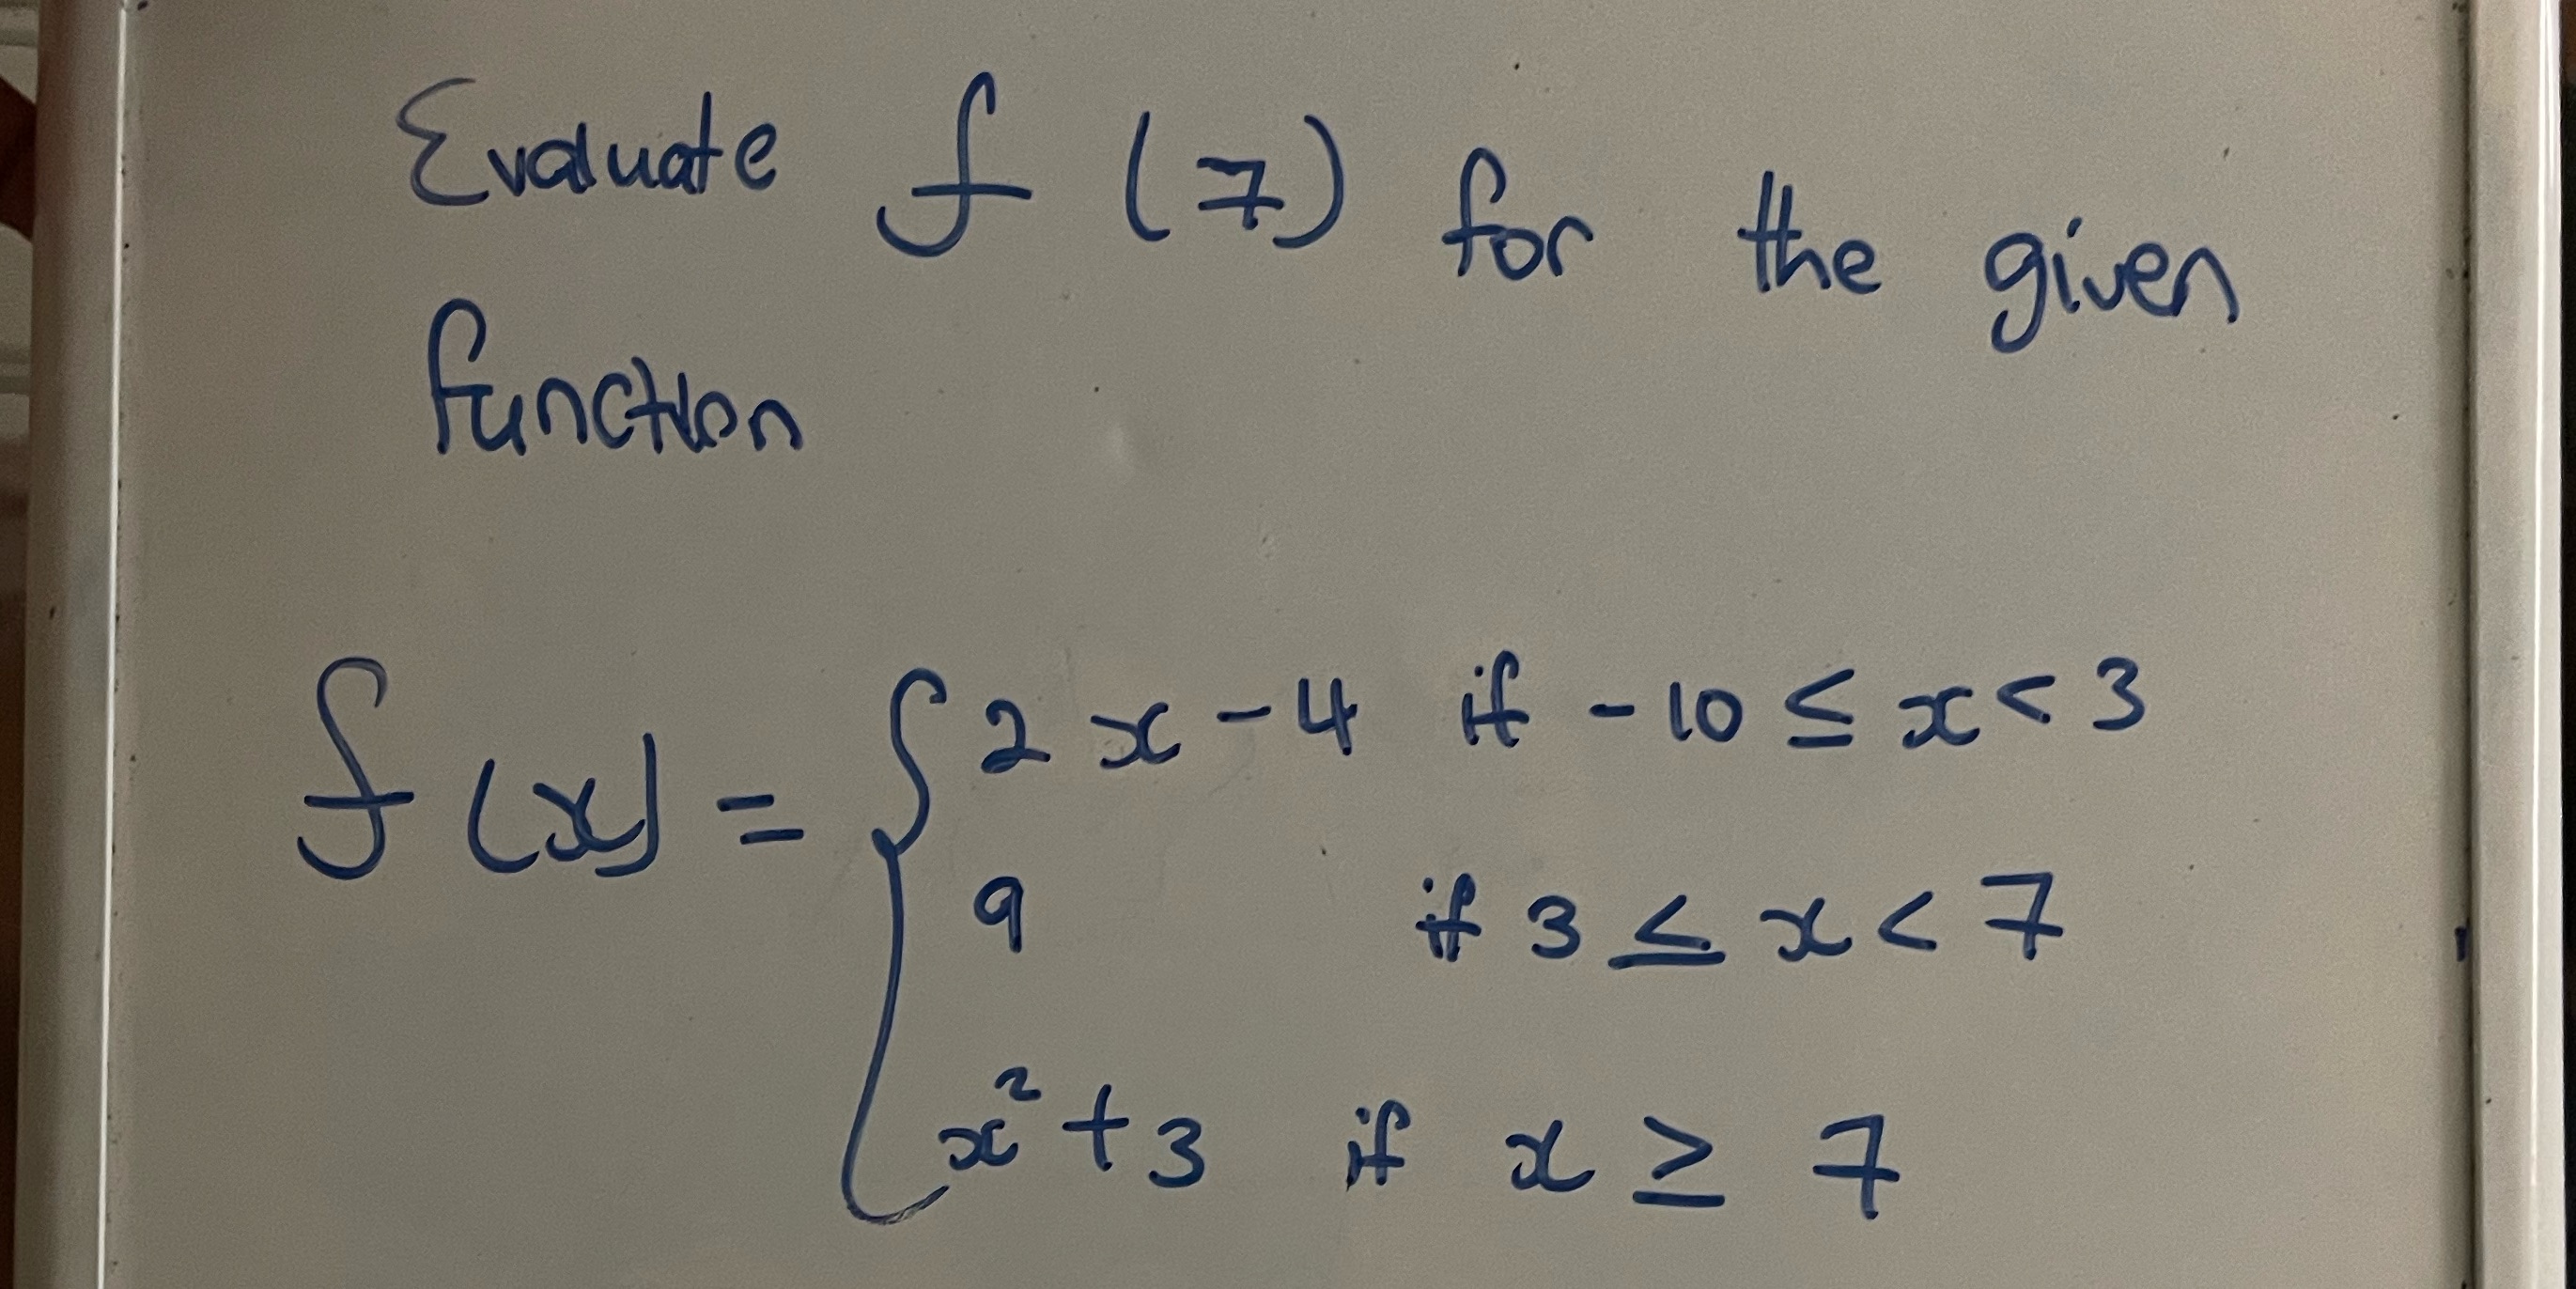 Evaluate f (7) for the given
function
f(x) = { 2x - 4 if -10 ≤ x < 3
9 if 3 ≤ x < 7
x² + 3 if x ≥ 7